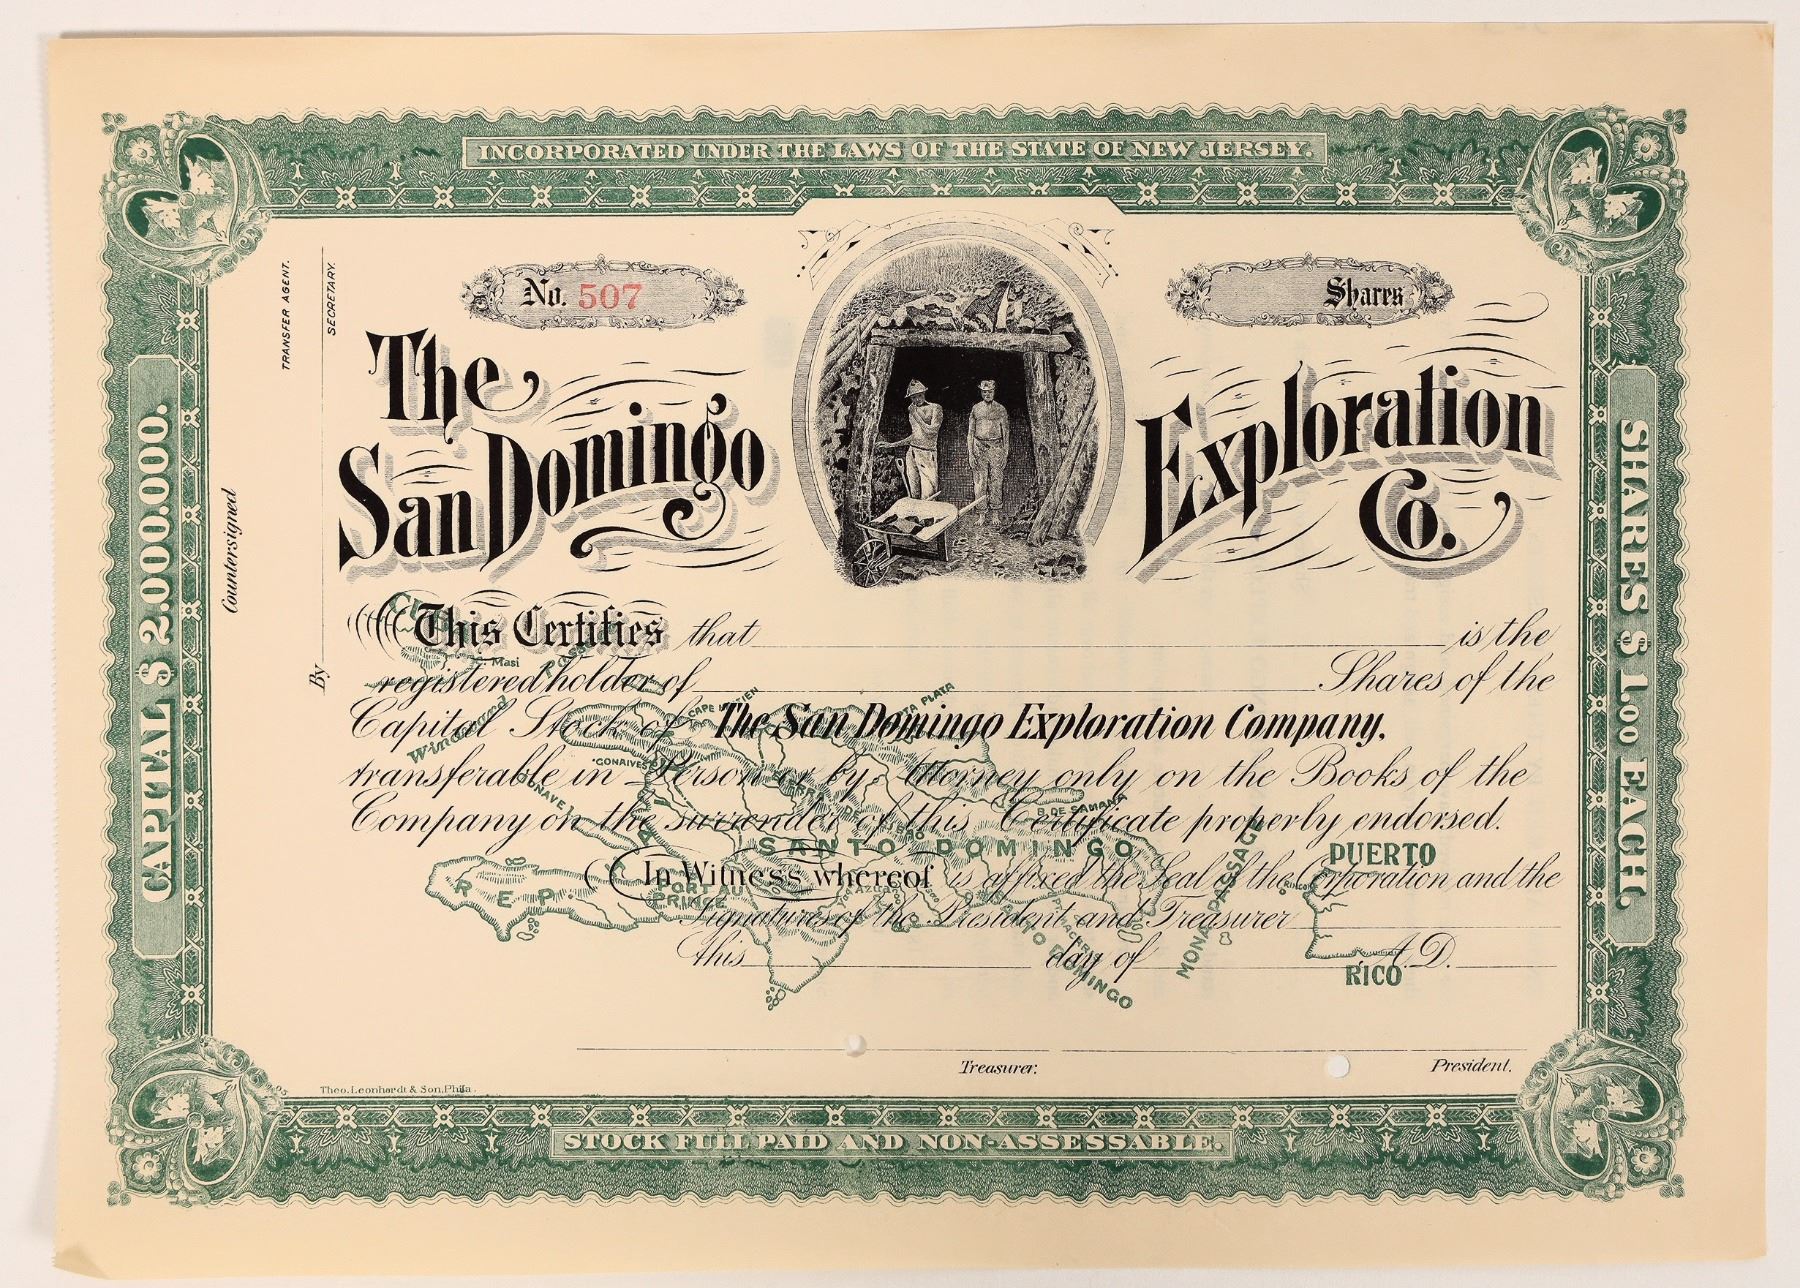 INCORPORATED UNDER THE LAWS OF THE STATE OF NEW JERSEY.
No. 507
Shares
The
San Domingo
Exploration
Co.
CAPITAL $ 2.000.000.
SHARES $ 1.00 EACH.
TRANSFER AGENT.
SECRETARY.
Countersigned
By
This Certifies that is the
registered holder of Shares of the
Capital Stock of The San Domingo Exploration Company,
transferable in Person or by Attorney only on the Books of the
Company on the surrender of this Certificate properly endorsed.
In Witness whereof is affixed the Seal of the Corporation and the
Signatures of the President and Treasurer
this day of A.D.
Masi
Windward
PLATA
GONAIVES
B. DE SAMANA
SANTO DOMINGO
REP.
PORT AU
PRINCE
AZUA
MONA PASSAGE
PUERTO
RICO
Treasurer.
President.
Theo. Leonhardt & Son, Phila.
STOCK FULL PAID AND NON-ASSESSABLE.